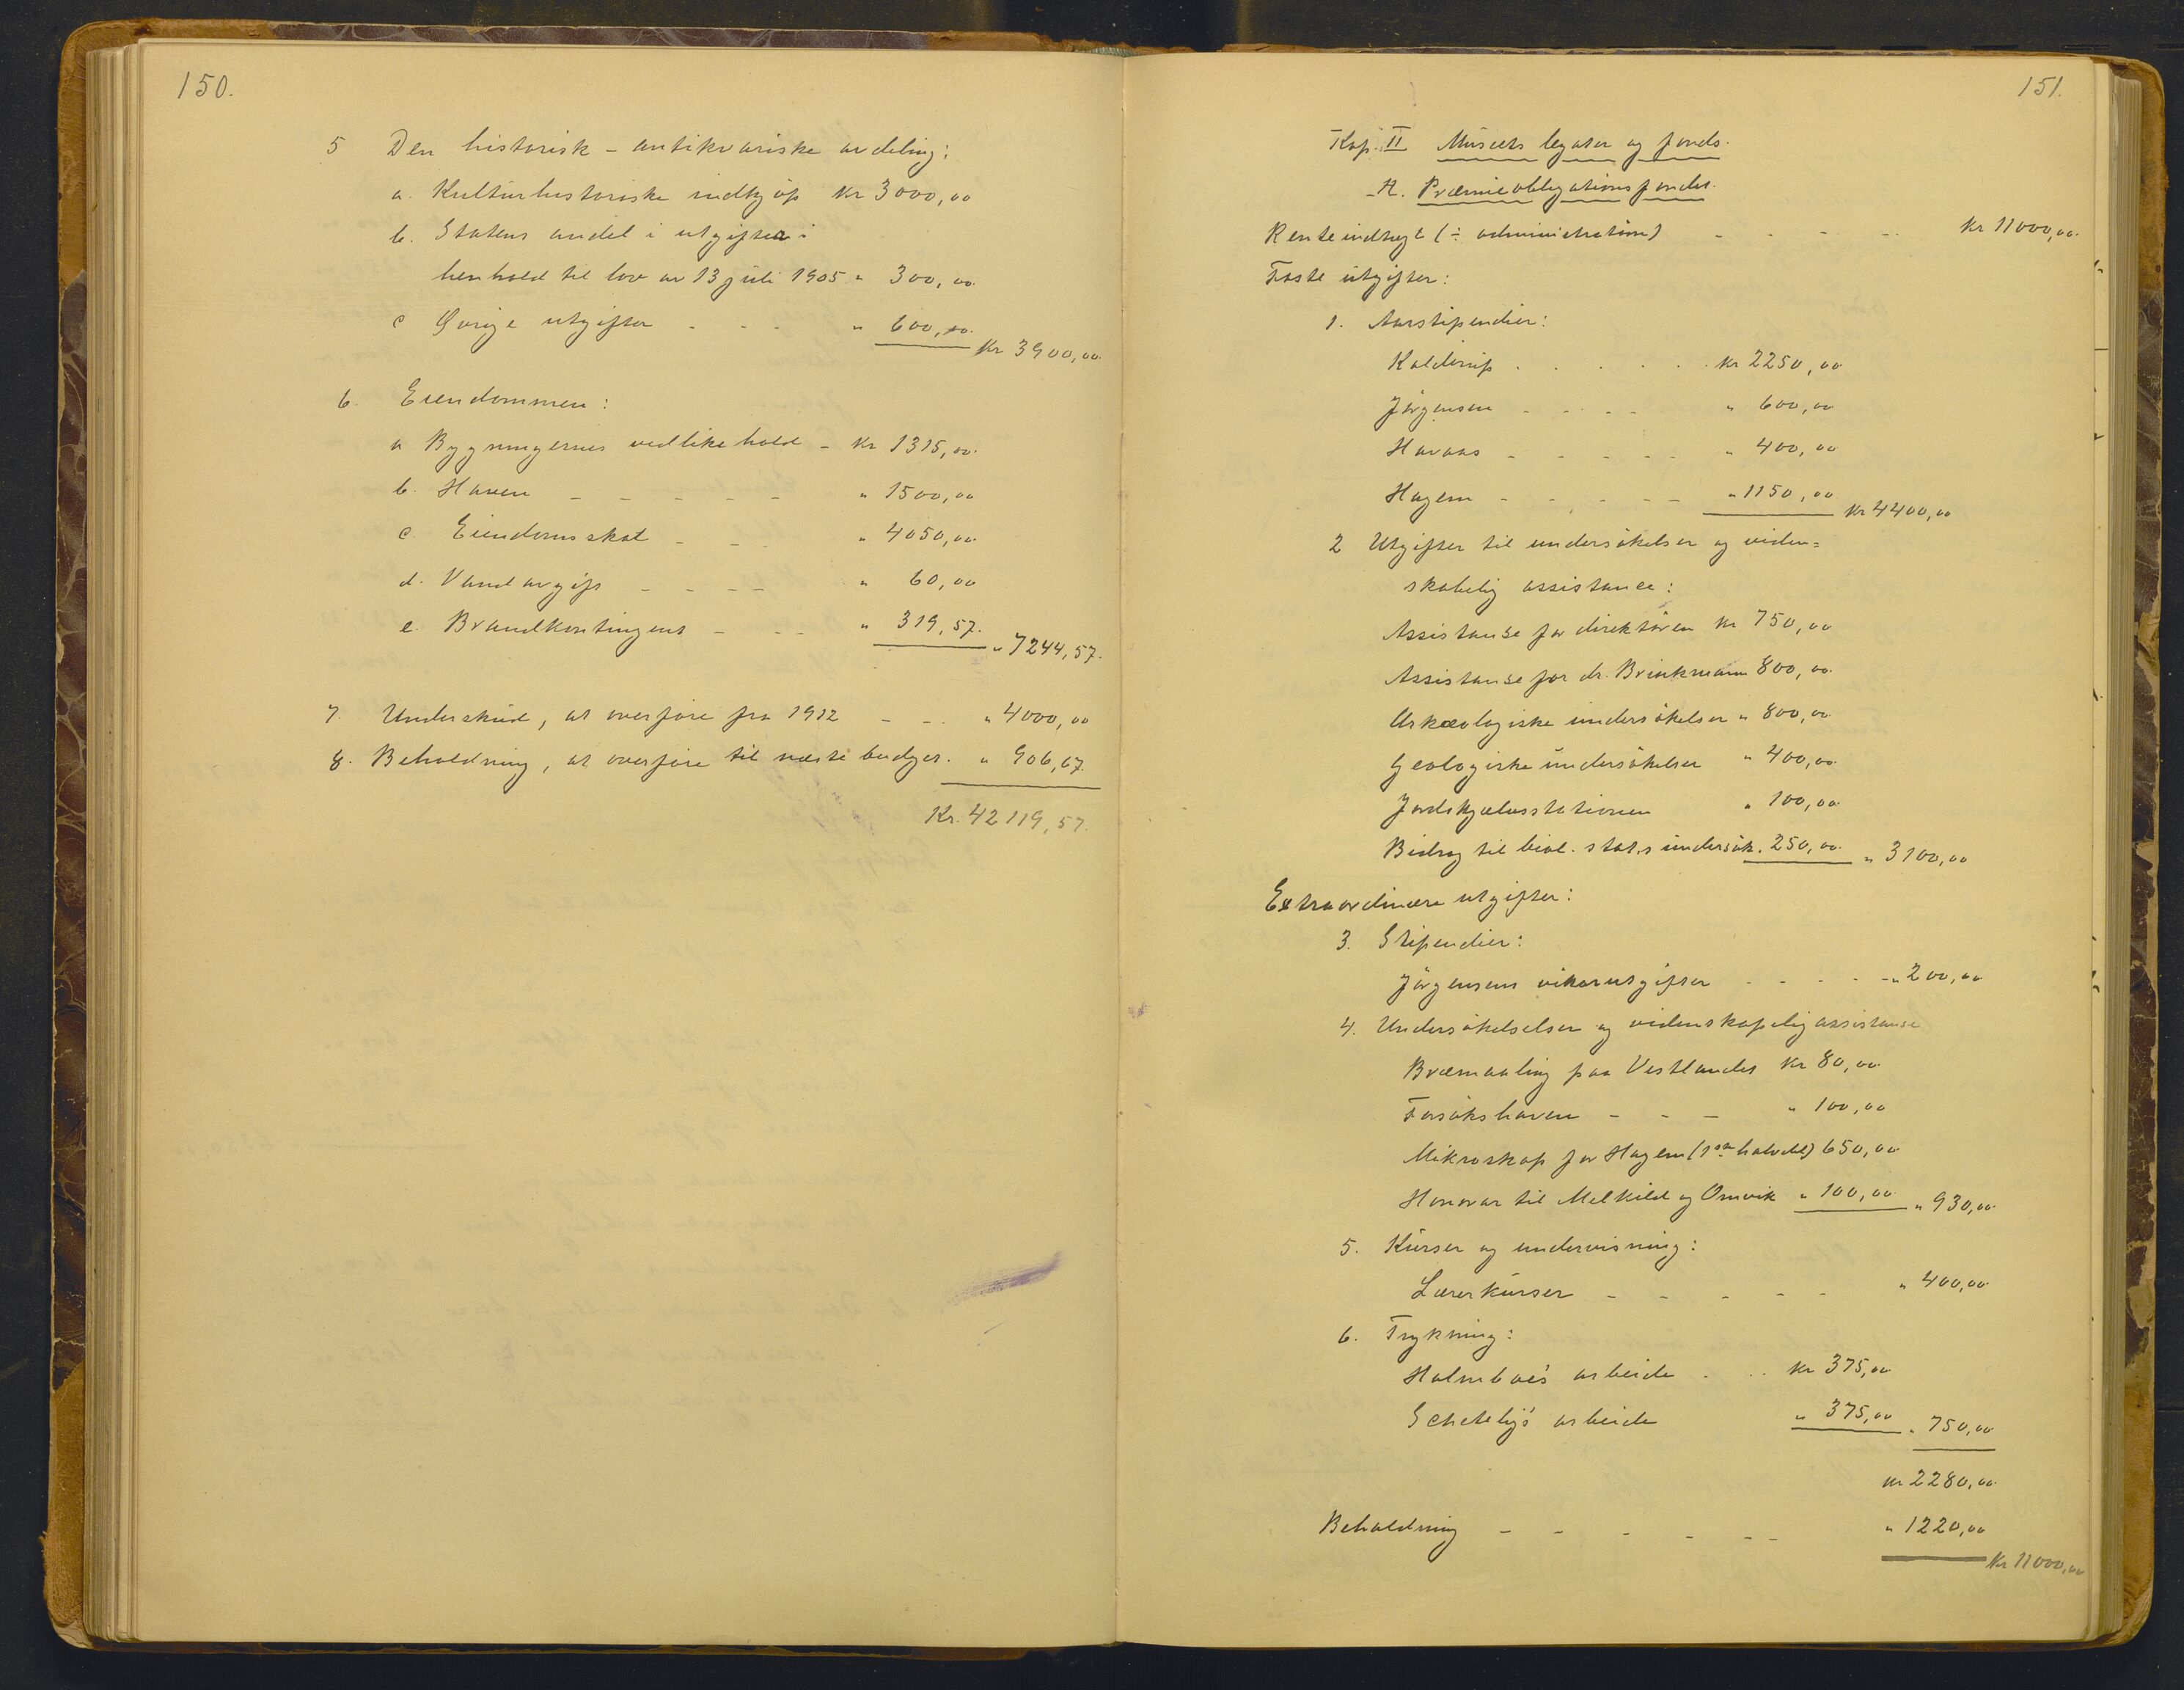 150.
5 Den historisk-antikvariske avdeling:
a. Kulturhistoriske indkjøp Kr 3000,00
b. Statens andel i utgifter i
henhold til lov av 13 juli 1905 " 300,00
c Øvrige utgifter - - - " 600,00.
Kr 3900,00
6. Eiendommen:
a Bygningernes vedlikehold - Kr 1315,00.
b. Haven - - - - - " 1500,00
c. Eiendomsskat - - " 4050,00
d. Vandavgift - - - - " 60,00
e. Brandkontingent - - - " 319,57.
" 7244,57.
7. Underskud, at overføre fra 1912 - - " 4000,00
8. Beholdning, at overføre til næste budget. " 906,07.
Kr. 42119,57.
151.
Kap. II Museets legater og fonds.
A. Præmieobligationsfondet.
Renteindtægt (÷ administration) - - - - Kr 11000,00.
Faste utgifter:
1. Aarsstipendier:
Kolderup . . . . . Kr 2250,00
Jørgensen - - - - " 600,00
Havaas - - - - - " 400,00
Hagem - - - - - " 1150,00
Kr 4400,00
2 Utgifter til undersøkelser og viden=
skabelig assistance:
Assistanse for direktøren Kr 750,00
Assistanse for dr. Brinkmann 800,00.
Arkæologiske undersøkelser " 800,00
Geologiske undersøkelser " 400,00
Jordskjælvsstationen " 100,00
Bidrag til biol. stat.s undersøk. 250,00. " 3100,00
Extraordinære utgifter:
3. Stipendier:
Jørgensens vikarutgifter - - - - " 200,00
4. Undersøkelselser og videnskapelig assistanse
Bræmaaling paa Vestlandet Kr 80,00
Forsøkshaven - - - " 100,00
Mikroskop for Hagem (1ste halvdel) 650,00
Honorar til Melkild og Omvik " 100,00 " 930,00
5. Kurser og undervisning:
Lærerkurser - - - - - " 400,00
6. Trykning:
Holmboe's arbeide . . Kr 375,00
Schetelig's arbeide " 375,00 " 750,00
Kr 2280,00
Beholdning - - - - - - " 1220,00
Kr 11000,00